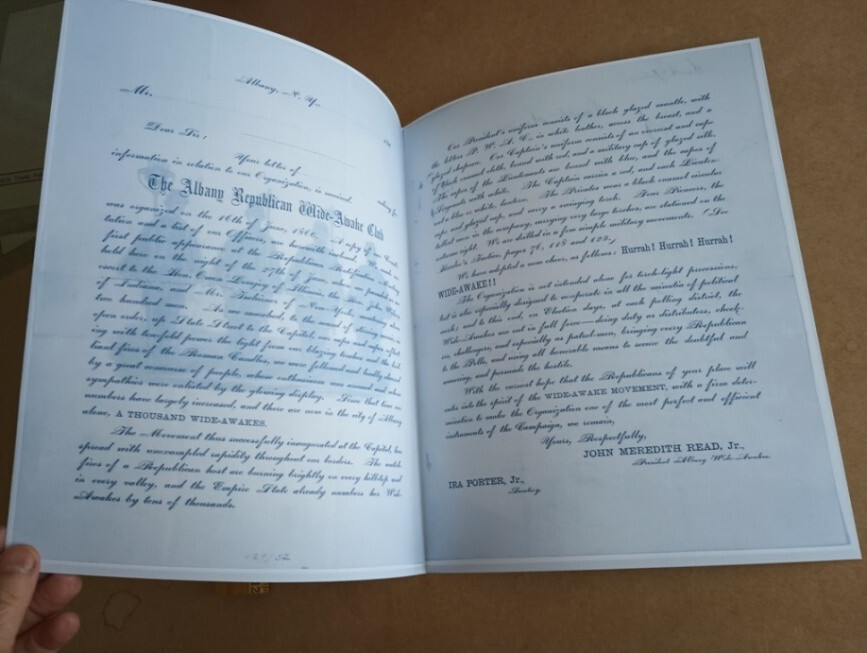 Albany, N. Y.
Mr.
Dear Sir:
Your letter of
asking for
information in relation to our Organization, is received.
The Albany Republican Wide-Awake Club
was organized on the 16th of June, 1860. A copy of our Consti-
tution and a list of our Officers, are herewith inclosed. We made our
first public appearance at the Republican Ratification Meeting
held here on the night of the 27th of June, when we paraded as an
escort to the Hon. Owen Lovejoy of Illinois, the Hon. John
of Indiana, and Mr. of New-York, numbering about
two hundred men. As we marched, to the sound of stirring music, in
open order, up State Street to the Capitol, our caps and capes reflect-
ing with twofold power the light from our blazing torches and the bril-
liant fires of the Roman Candles, we were followed and loudly cheered
by a great concourse of people, whose enthusiasm was aroused and whose
sympathies were enlisted by the glowing display. Since that time our
numbers have largely increased, and there are now in the city of Albany
alone, A THOUSAND WIDE-AWAKES.
The Movement thus successfully inaugurated at the Capitol, has
spread with unexampled rapidity throughout our borders. The watch-
fires of a Republican host are burning brightly on every hilltop and
in every valley, and the Empire State already numbers her Wide-
Awakes by tens of thousands.
Our President's uniform consists of a black glazed mantle, with
the letters P. W. A. C., in white leather, across the breast, and a
glazed chapeau. Our Captain's uniform consists of an overcoat and cape
of black enamel cloth, bound with red, and a military cap of glazed silk.
The capes of the Lieutenants are bound with blue, and the capes of
Sergeants with white. The Captain carries a red, and each Lieuten-
ant a blue or white, lantern. The Privates wear a black enamel circular
cape and glazed cap, and carry a swinging torch. Four Pioneers, the
tallest men in the company, carrying very large torches, are stationed on the
extreme right. We are drilled in a few simple military movements. (See
Hardee's Tactics, pages 76, 118 and 122.)
We have adopted a new cheer, as follows: Hurrah! Hurrah! Hurrah!
WIDE-AWAKE!!
The Organization is not intended alone for torch-light processions,
but is also especially designed to co-operate in all the minutiæ of political
work; and to this end, on Election days, at each polling district, the
Wide-Awakes are out in full force—doing duty as distributors, check-
ers, challengers, and especially as patrol-men, bringing every Republican
to the Polls, and using all honorable means to secure the doubtful and
wavering, and persuade the hostile.
With the earnest hope that the Republicans of your place will
enter into the spirit of the WIDE-AWAKE MOVEMENT, with a firm deter-
mination to make the Organization one of the most perfect and efficient
instruments of the Campaign, we remain,
Yours, Respectfully,
JOHN MEREDITH READ, Jr.,
President Albany Wide-Awakes.
IRA PORTER, Jr.,
Secretary.